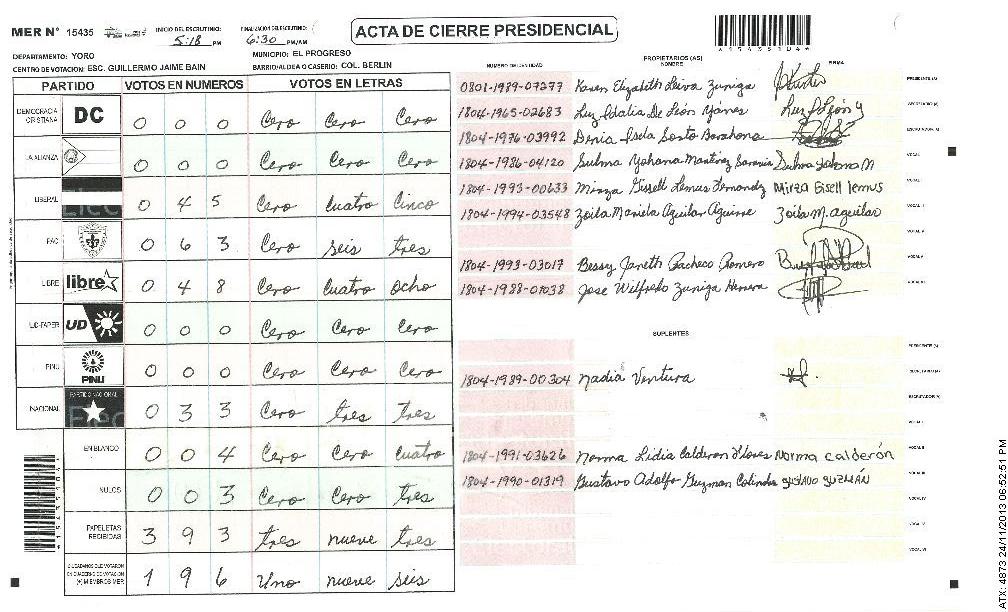 MER N° 15435 INICIO DEL ESCRUTINIO: 5:18 PM FINALIZACION DEL ESCRUTINIO: 6:30 PM/AM ACTA DE CIERRE PRESIDENCIAL
DEPARTAMENTO: YORO MUNICIPIO: EL PROGRESO
CENTRO DE VOTACION: ESC. GUILLERMO JAIME BAIN BARRIO/ALDEA O CASERIO: COL. BERLIN
PARTIDO VOTOS EN NUMEROS VOTOS EN LETRAS
DEMOCRACIA CRISTIANA DC 0 0 0 Cero Cero Cero
LA ALIANZA 0 0 0 Cero Cero Cero
LIBERAL 0 4 5 Cero Cuatro Cinco
PAC 0 6 3 Cero seis tres
LIBRE libre 0 4 8 Cero Cuatro Ocho
UD-FAPER UD 0 0 0 Cero Cero Cero
PINU PINU 0 0 0 Cero Cero Cero
NACIONAL PARTIDO NACIONAL 0 3 3 Cero tres tres
EN BLANCO 0 0 4 Cero Cero Cuatro
NULOS 0 0 3 Cero Cero tres
PAPELETAS RECIBIDAS 3 9 3 tres nueve tres
CIUDADANOS QUE VOTARON EN CUADERNO DE VOTACION (+) MIEMBROS MER 1 9 6 Uno nueve seis
PROPIETARIOS (AS)
NUMERO DE IDENTIDAD NOMBRE FIRMA
0801-1989-07277 Karen Elizabeth Leiva Zuniga PRESIDENTE (A)
1804-1965-02683 Luz Idalia De León Yanes Luz I León y SECRETARIO (A)
1804-1976-03992 Denia Isela Sosto Barahona ESCRUTADOR (A)
1804-1986-04120 Sulma Yohana Martinez Sulma Yohana M VOCAL I
1804-1993-00633 Mirza Gissell Lemus Fernandz Mirza Gisell lemus VOCAL II
1804-1994-03548 Zoila Mariela Aguilar Aguirre Zoila M. aguilar VOCAL III
VOCAL IV
1804-1993-03017 Bessy Janeth Pacheco Romero VOCAL V
1804-1988-01038 Jose Wilfredo Zuniga Herrera VOCAL VI
SUPLENTES
PRESIDENTE (A)
1804-1989-00304 Nadia Ventura SECRETARIO (A)
ESCRUTADOR (A)
VOCAL I
1804-1991-03626 Norma Lidia Calderon Flores Norma calderón VOCAL II
1804-1990-01319 Gustavo Adolfo Guzman Colindre gustavo guzmán VOCAL III
VOCAL IV
VOCAL V
VOCAL VI
ATX: 4873 24/11/2013 06:52:51 PM